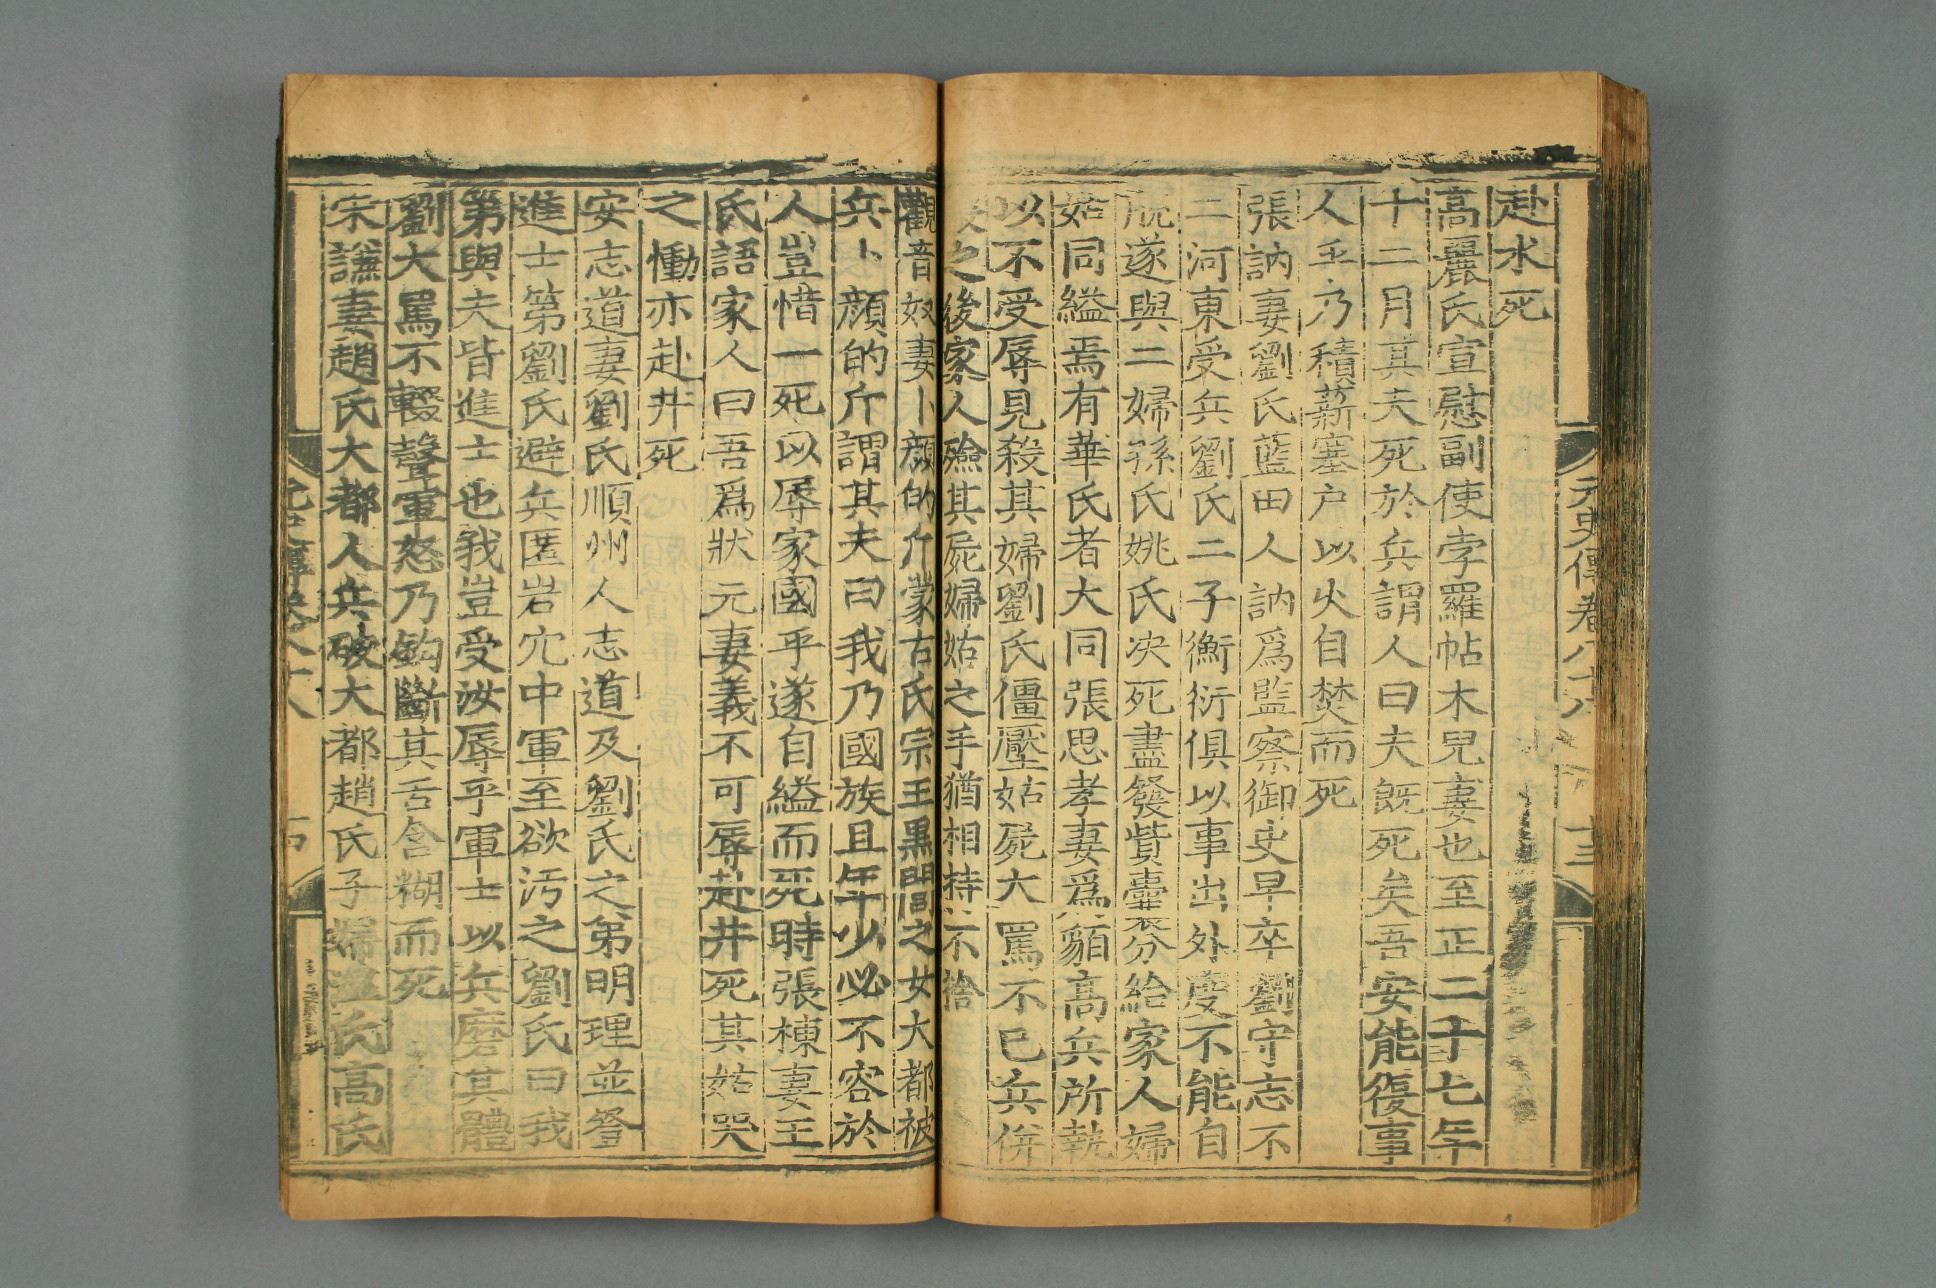 元史傳卷八十八
十三
赴水死
高麗氏宣慰副使孛羅帖木兒妻也至正二十七年
十二月其夫死於兵謂人曰夫旣死矣吾安能復事
人乎乃積薪塞户以火自焚而死
張訥妻劉氏藍田人訥爲監察御史早卒劉守志不
二河東受兵劉氏二子衡衍俱以事出外度不能自
脫遂與二婦孫氏姚氏决死盡發貲囊分給家人婦
姑同縊焉有華氏者大同張思孝妻爲貊高兵所執
以不受辱見殺其婦劉氏僵壓姑屍大罵不已兵併
之後家人殮其屍婦姑之手猶相持不捨
觀音奴妻卜顔的斤蒙古氏宗王黑閭之女大都被
兵卜顔的斤謂其夫曰我乃國族且年少必不容於
人豈惜一死以辱家國乎遂自縊而死時張棟妻王
氏語家人曰吾爲狀元妻義不可辱赴井死其姑哭
之慟亦赴井死
安志道妻劉氏順州人志道及劉氏之弟明理並登
進士第劉氏避兵匿岩穴中軍至欲汚之劉氏曰我
第與夫皆進士也我豈受汝辱乎軍士以兵磨其體
劉大罵不輟聲軍怒乃鈎斷其舌含糊而死
宋謙妻趙氏大都人兵破大都趙氏子婦溫氏高氏
元史傳卷八十八
十四